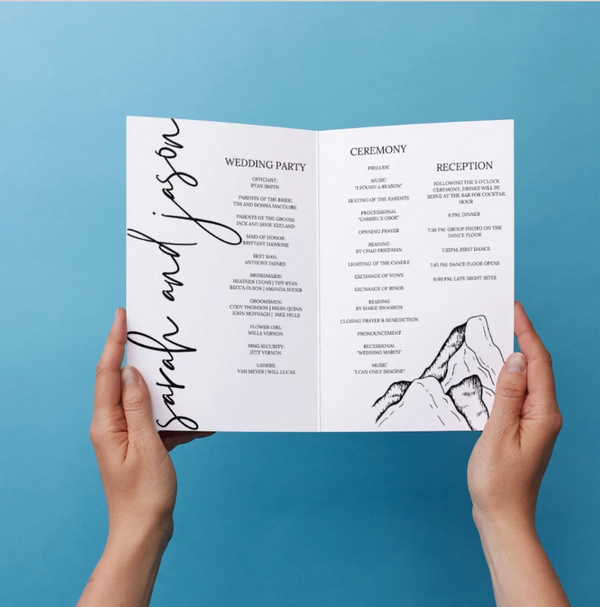 sarah and jason
WEDDING PARTY
OFFICIANT:
RYAN SMITH
PARENTS OF THE BRIDE:
TIM AND DONNA MACGUIRE
PARENTS OF THE GROOM:
JACK AND JANIE KEELAND
MAID OF HONOR:
BRITTANY HAWKINS
BEST MAN:
ANTHONY JAYNES
BRIDESMAIDS:
HEATHER LYONS | TIFF RYAN
BECCA OLSON | AMANDA SODER
GROOMSMEN:
CODY THOMSON | BRIAN QUINN
JOHN MOYNAGH | JAKE HILLS
FLOWER GIRL:
WILLA VERNON
RING SECURITY:
JETT VERNON
USHERS:
VAN MEYER | WILL LUCAS
CEREMONY
PRELUDE
MUSIC
"I FOUND A REASON"
SEATING OF THE PARENTS
PROCESSIONAL
"GABRIEL'S OBOE"
OPENING PRAYER
READING
BY CHAD FRIEDMAN
LIGHTING OF THE CANDLE
EXCHANGE OF VOWS
EXCHANGE OF RINGS
READING
BY MARIE SWANSON
CLOSING PRAYER & BENEDICTION
PRONOUNCEMENT
RECESSIONAL
"WEDDING MARCH"
MUSIC
"I CAN ONLY IMAGINE"
RECEPTION
FOLLOWING THE 5 O'CLOCK
CEREMONY, DRINKS WILL BE
SERVE AT THE BAR FOR COCKTAIL
HOUR
6 PM: DINNER
7:30 PM: GROUP PHOTO ON THE
DANCE FLOOR
7:35PM: FIRST DANCE
7:45 PM: DANCE FLOOR OPENS
9:00 PM: LATE NIGHT BITES